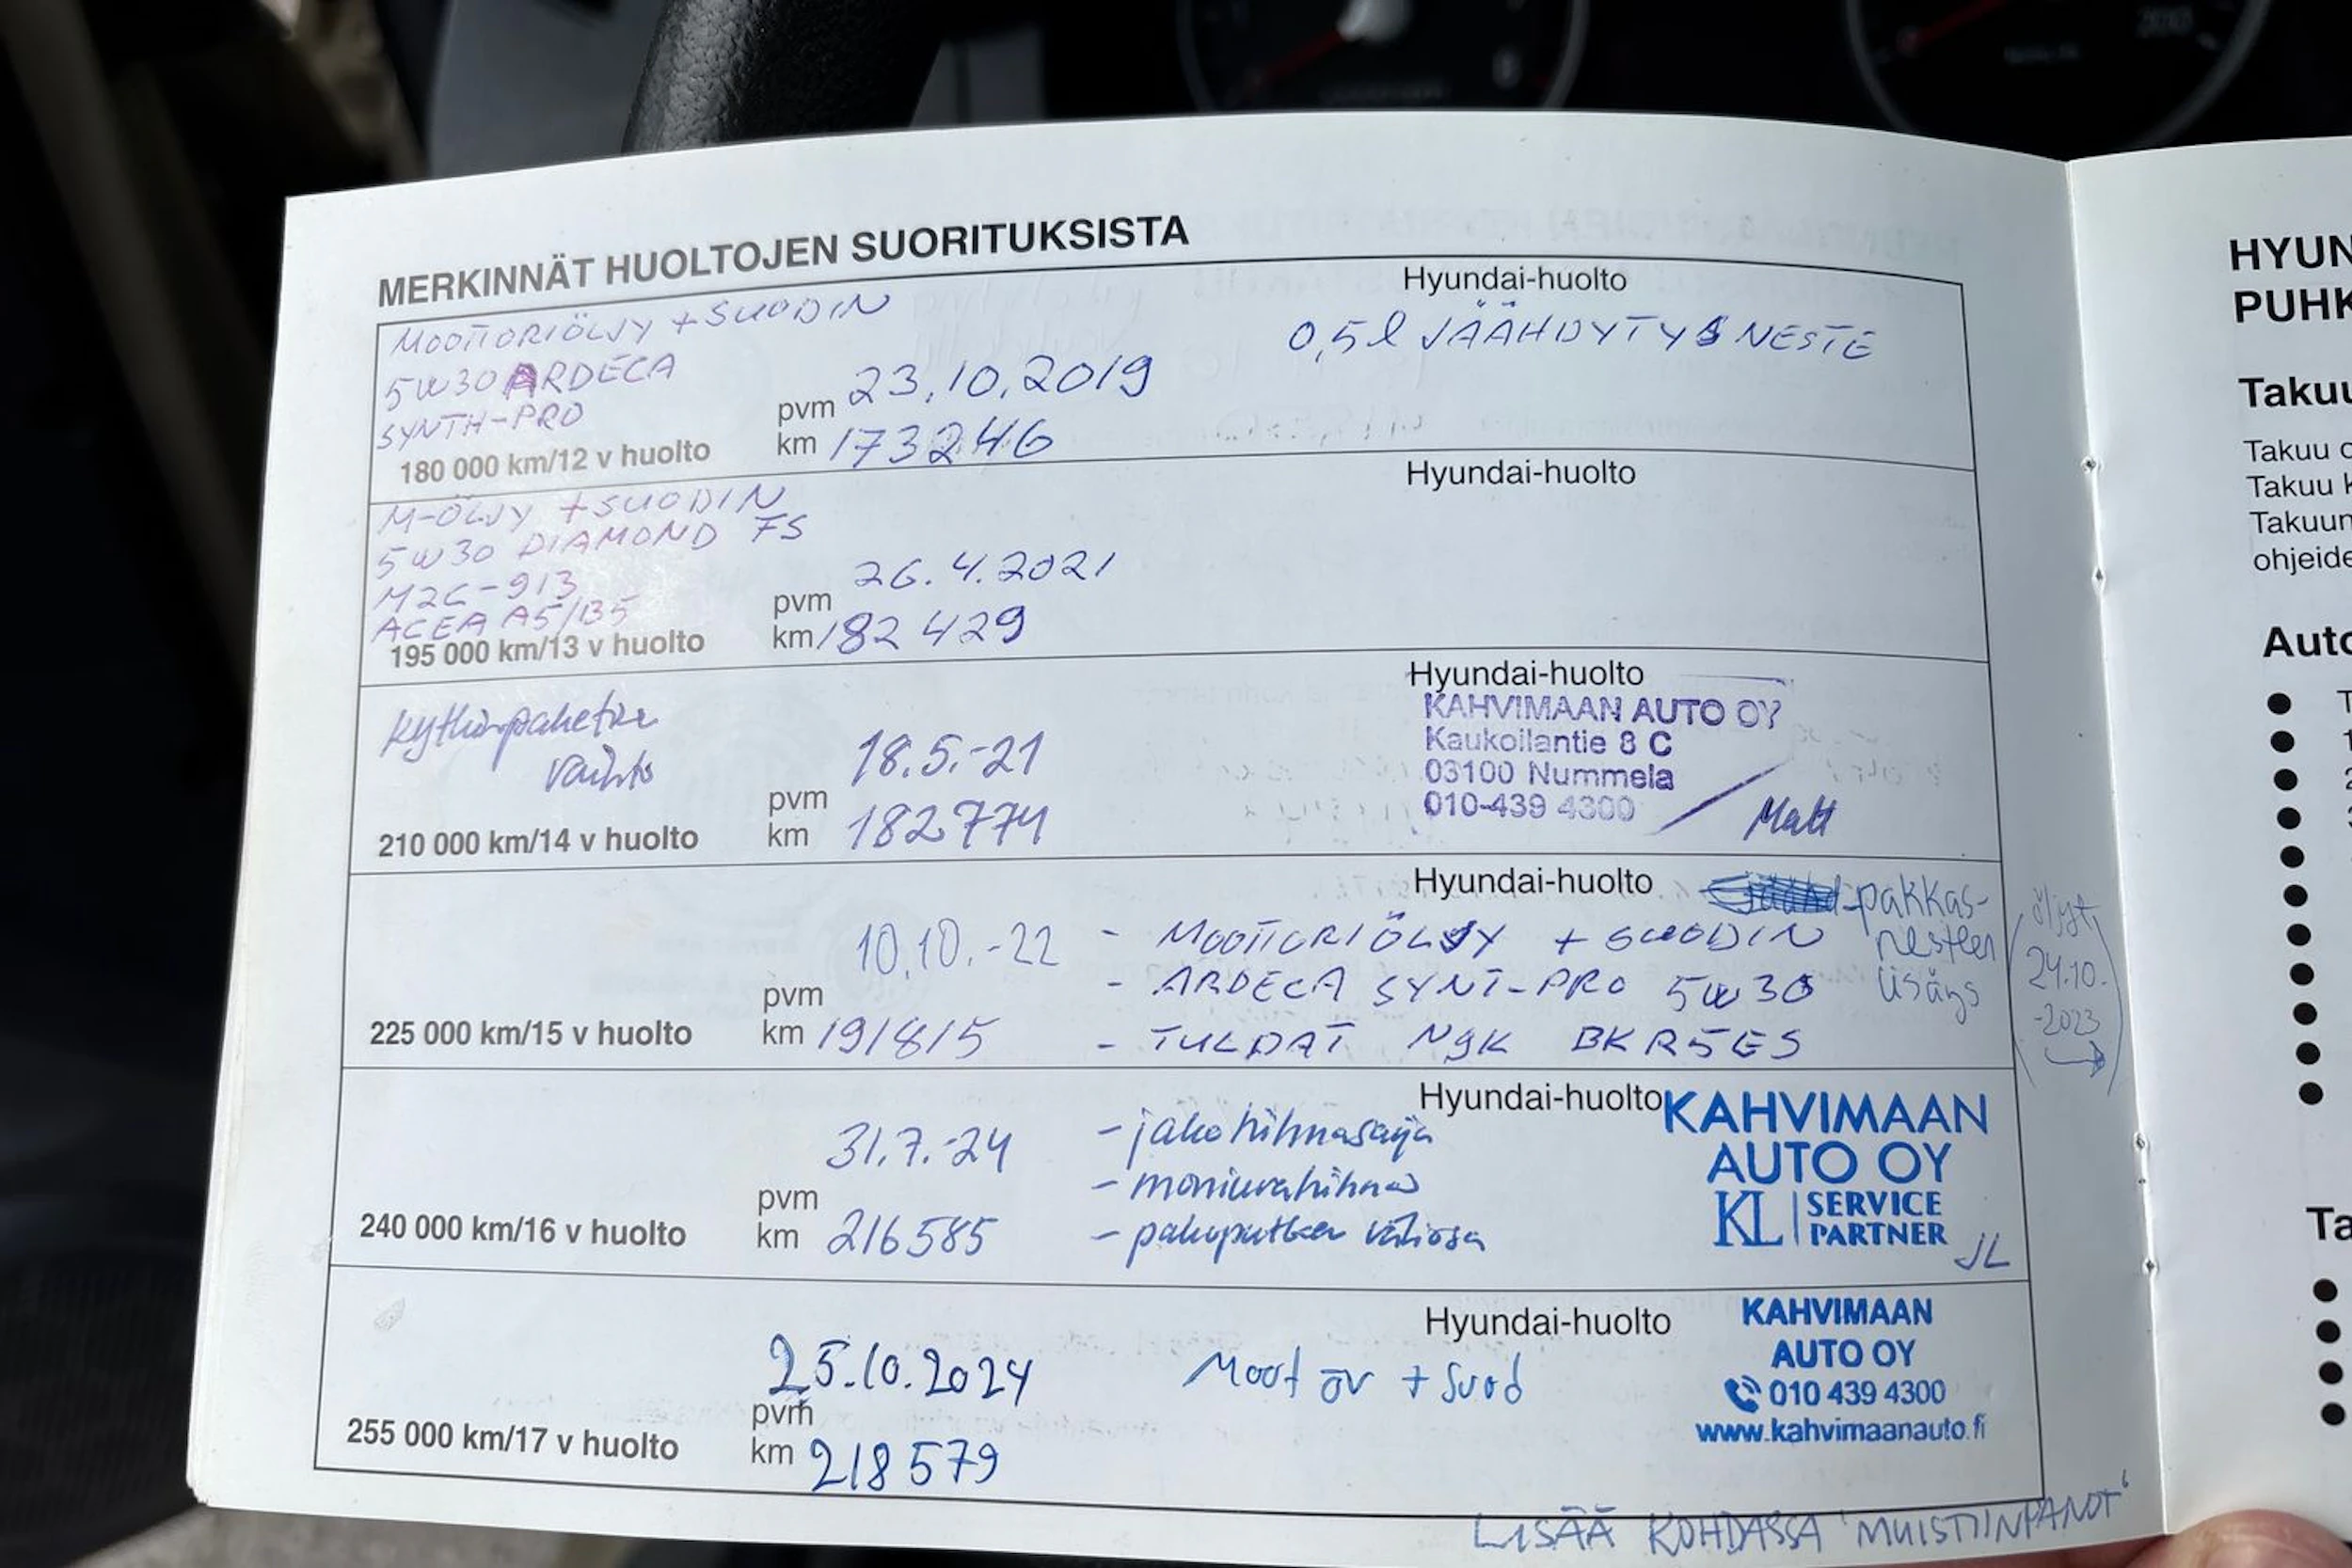 MERKINNÄT HUOLTOJEN SUORITUKSISTA
MOOTTORIÖLJY + SUODIN
5W30 ARDECA
SYNTH-PRO
180 000 km/12 v huolto
pvm 23.10.2019
km 173246
Hyundai-huolto
0,5l JÄÄHDYTYSNESTE
M-ÖLJY + SUODIN
5W30 DIAMOND FS
M2C-913
ACEA A5/B5
195 000 km/13 v huolto
pvm 26.4.2021
km 182 429
Hyundai-huolto
Kytkinpaketin
vaihto
210 000 km/14 v huolto
pvm 18.5.-21
km 182774
Hyundai-huolto
KAHVIMAAN AUTO OY
Kaukoilantie 8 C
03100 Nummela
010-439 4300
225 000 km/15 v huolto
pvm 10.10.-22
km 191815
Hyundai-huolto
- MOOTTORIÖLJY + SUODIN
- ARDECA SYNT-PRO 5W30
- TULPAT NGK BKR5ES
pakkas-
nesteen
lisäys
öljyt
24.10.
-2023
240 000 km/16 v huolto
pvm 31.7.-24
km 216585
Hyundai-huolto
- jakohihnasarja
- moniurahihna
- pakoputken väliosa
KAHVIMAAN
AUTO OY
KL SERVICE
PARTNER
JL
255 000 km/17 v huolto
pvm 25.10.2024
km 218579
Hyundai-huolto
Moot öv + Suod
KAHVIMAAN
AUTO OY
010 439 4300
www.kahvimaanauto.fi
LISÄÄ KOHDASSA 'MUISTIINPANOT'
HYUN
PUHK
Takuu
Takuu
Takuu
Takuun
ohjeide
Auto
Ta